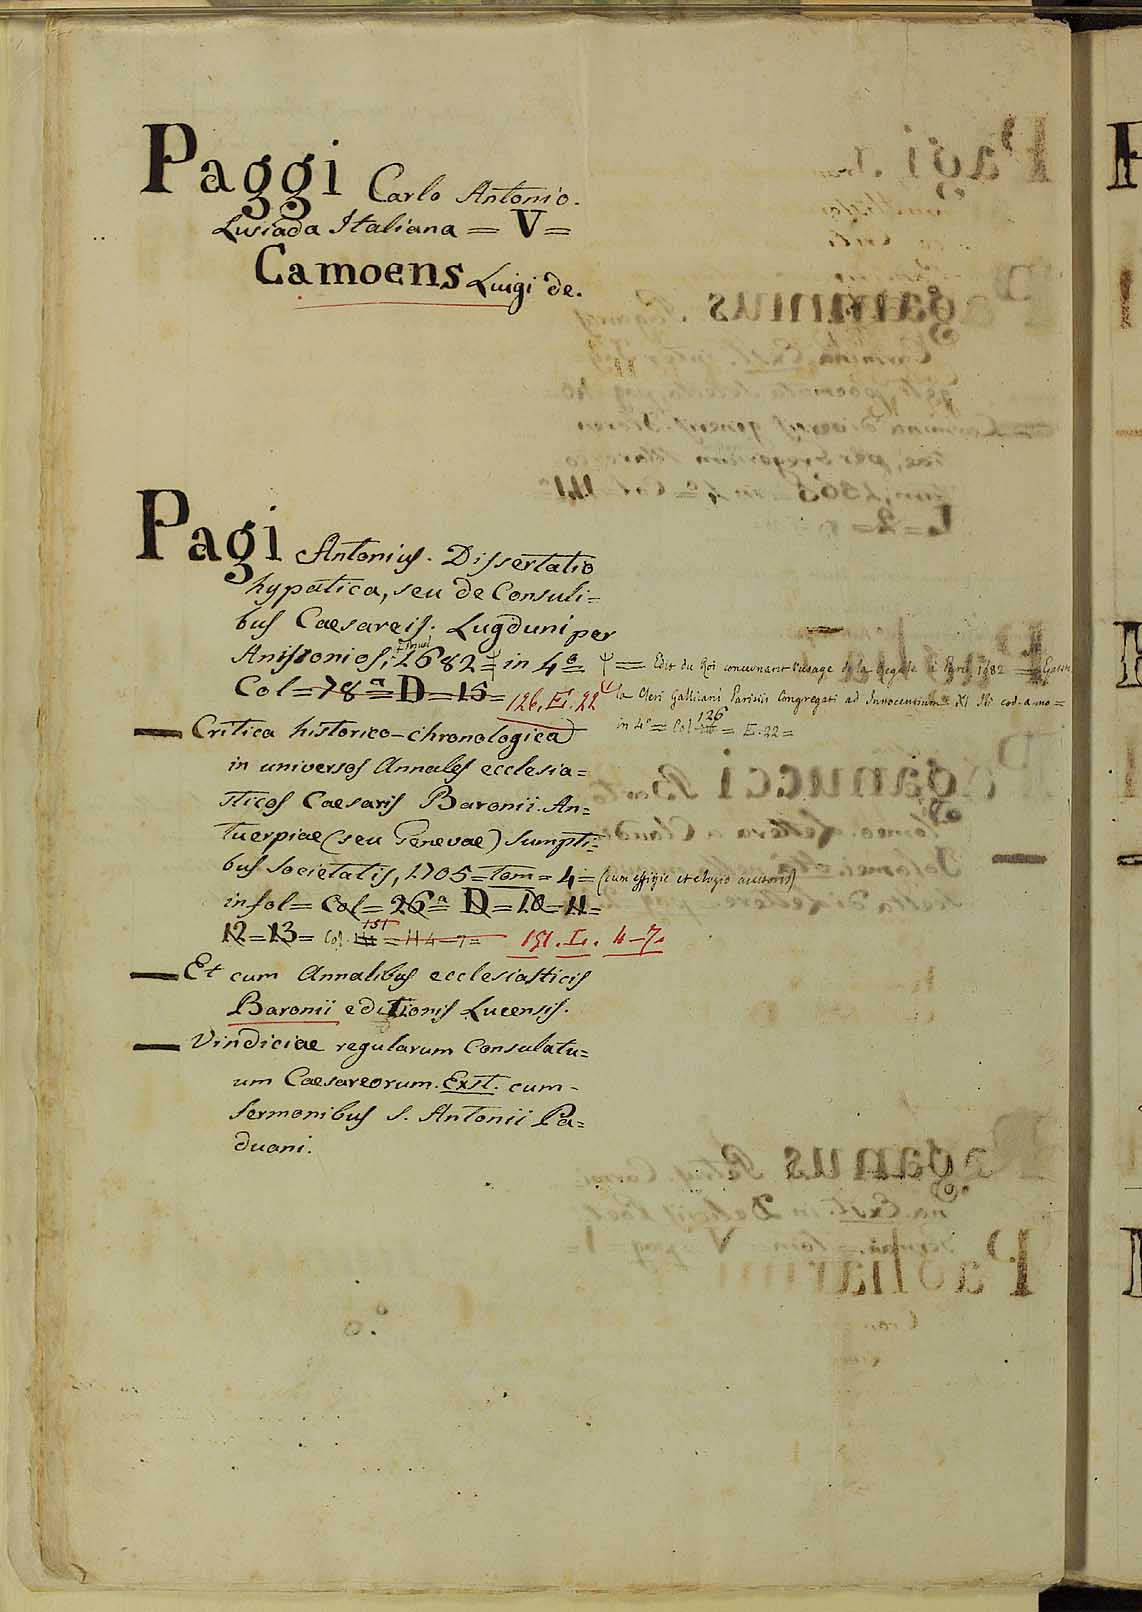 Paggi Carlo Antonio.
Lusiada Italiana = V =
Camoens Luigi de.
Pagi Antonius. Dissertatio
hypatica, seu de Consuli=
bus Caesareis. Lugduni per
Anissonios, 1682 = in 4º
Col = 78ª = D = 15 = 126. E. 22
Ψ = Edit du Roi concernant l'usage de la Regale à Paris 1682 =
la Cleri Gallicani Parisiis Congregati ad Innocentium XI eod. anno =
in 4º = Col 126 = E. 22 =
Critica historico-chronologica
in universos Annales ecclesia=
sticos Caesaris Baronii. An=
tuerpiae (seu Genevae) sumpti=
bus societatis, 1705 = tom = 4 = (cum effigie et elogio auctoris)
in fol = Col = 26ª D = 10 = 11 =
12 = 13 = Col. 151 = H 4 - 7 = 151. L. 4-7.
Et cum Annalibus ecclesiasticis
Baronii editionis Lucensis.
Vindiciae regularum Consulatu=
um Caesareorum. Exst. cum
sermonibus s. Antonii Pa=
duani.